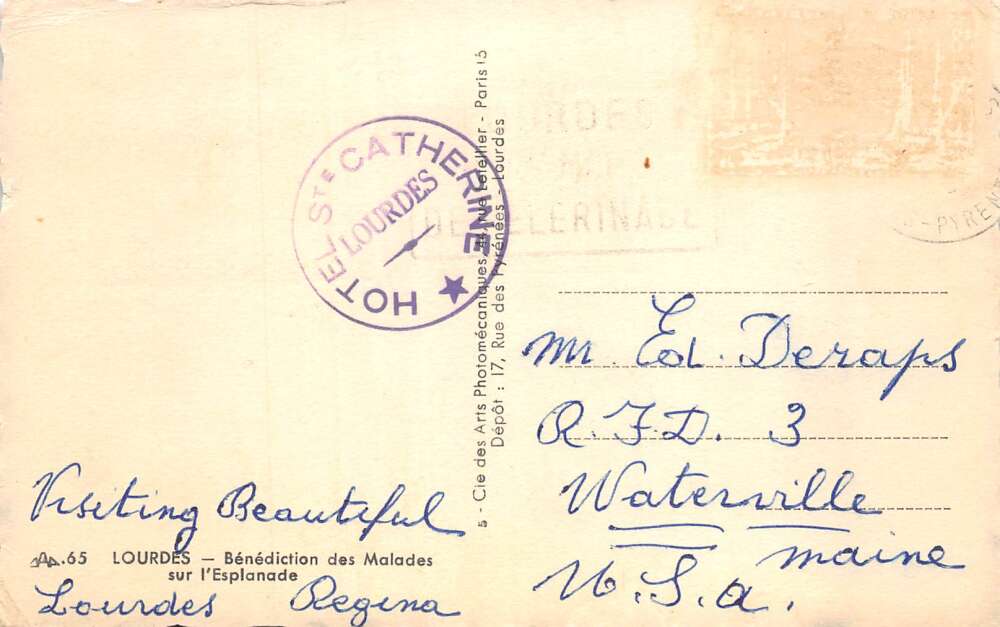 HOTEL STE CATHERINE
LOURDES
5 - Cie des Arts Photomécaniques, 44, rue Letellier - Paris 15
Dépôt : 17, Rue des Pyrénées - Lourdes
LOURDES
DE PELERINAGE
PYREN
Mr Ed. Deraps
R.F.D. 3
Waterville
maine
U.S.a.
Visiting Beautiful
65 LOURDES — Bénédiction des Malades
sur l'Esplanade
Lourdes Regina